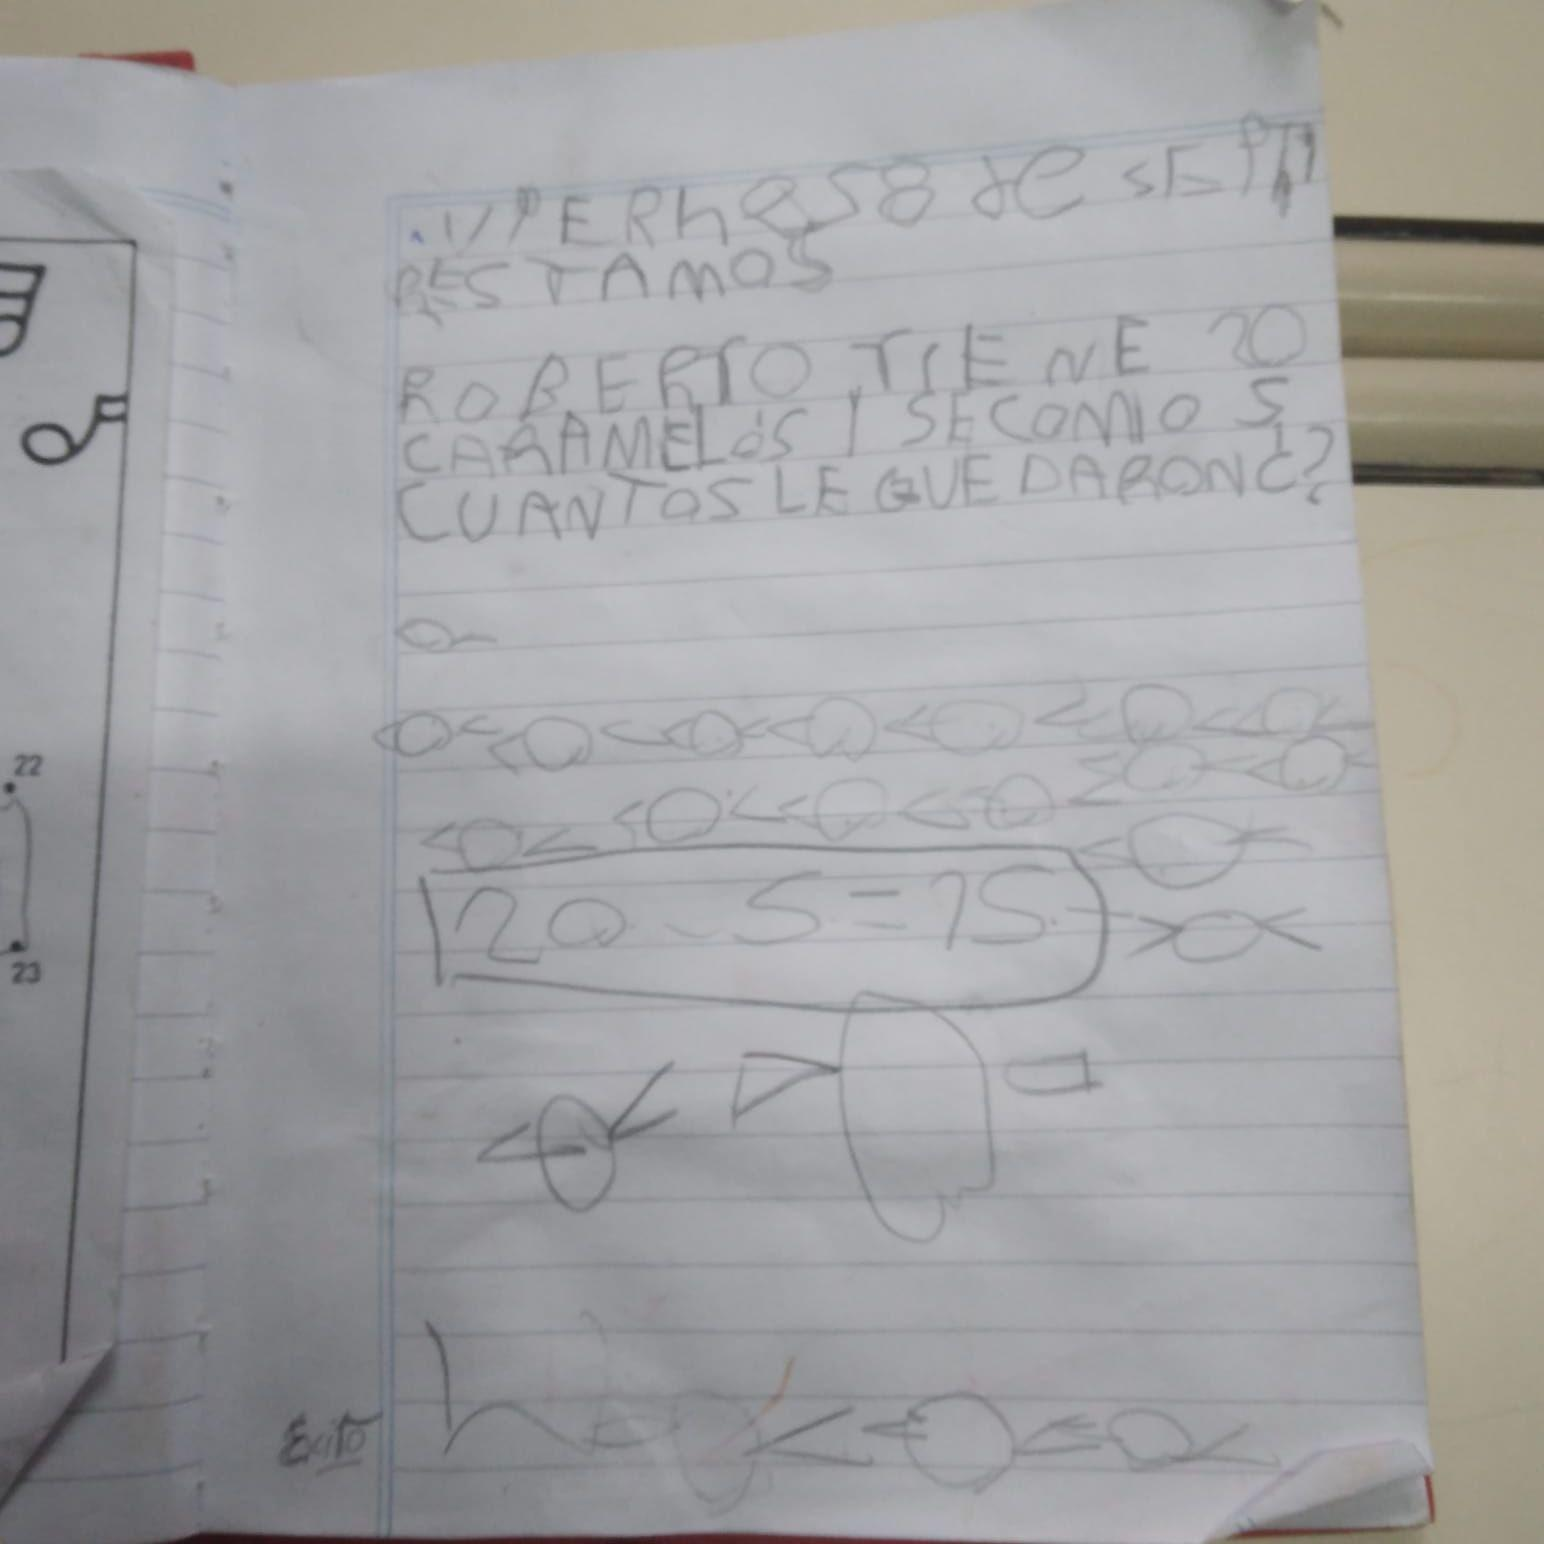 VIERNES 8 de SEPTI
RESTAMOS
ROBERTO TIENE 20
CARAMELOS I SE COMIO 5
CUANTOS LE QUEDARON ¿?
20 - 5 = 15
Exito
22
23